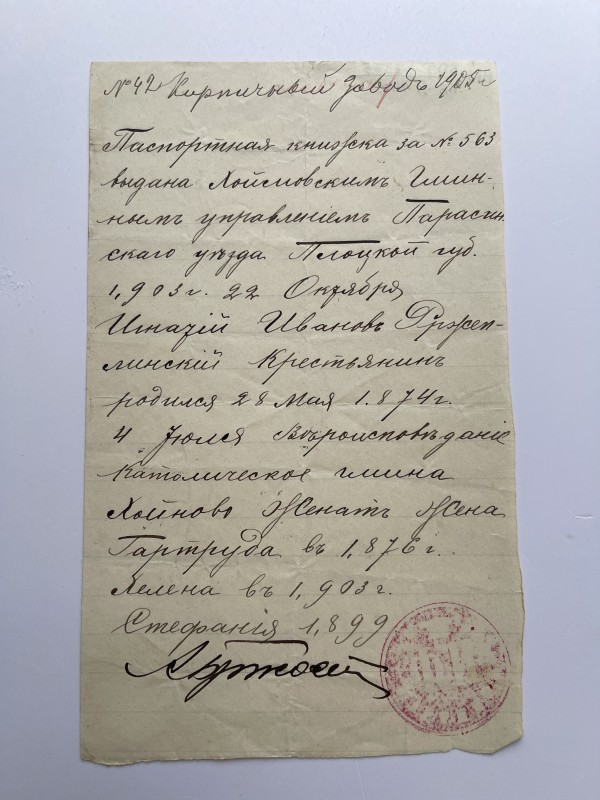 № 42 Кирпичный заводъ 1905 г
Паспортная книжка за № 563
выдана Хойновскимъ Гмин-
нымъ управленіемъ
скаго уѣзда Плоцкой губ.
1,903 г. 22 Октября
Игнацій Ивановъ
линскій Крестьянин
родился 28 Мая 1.874 г.
4 Іюлся Вѣроисповѣданіе
Католическое гмина
Хойново Женатъ Жена
Гартруда въ 1,876 г.
Хелена въ 1,903 г.
Стефанія 1,899